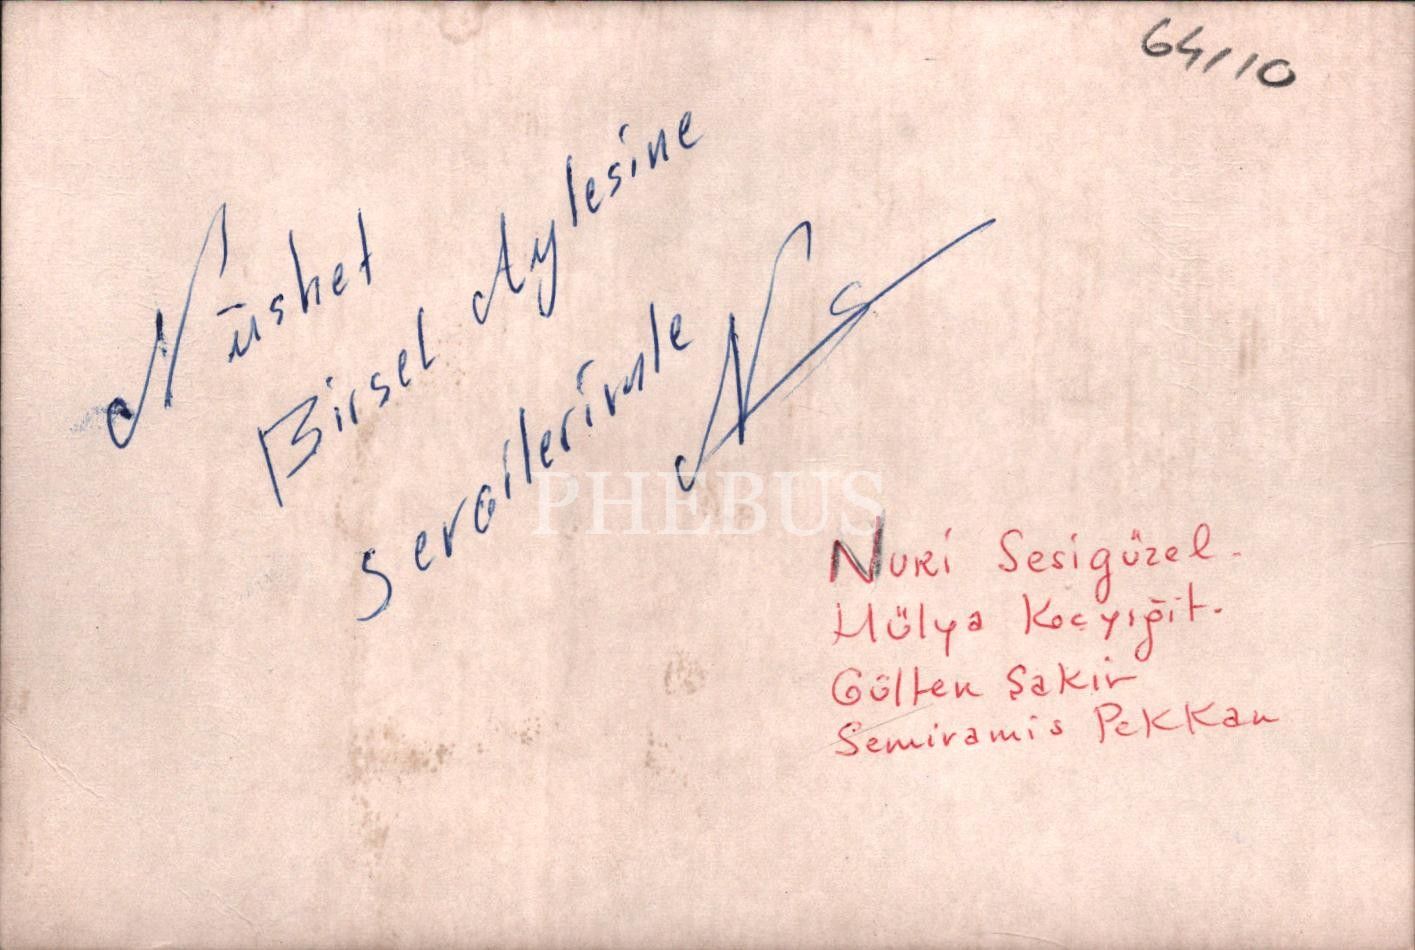 64/10
Nüshet
Birsel Aylesine
sevgilerimle
PHEBUS
Nuri Sesigüzel.
Hülya Koçyiğit.
Gülten Şakir
Semiramis Pekkan